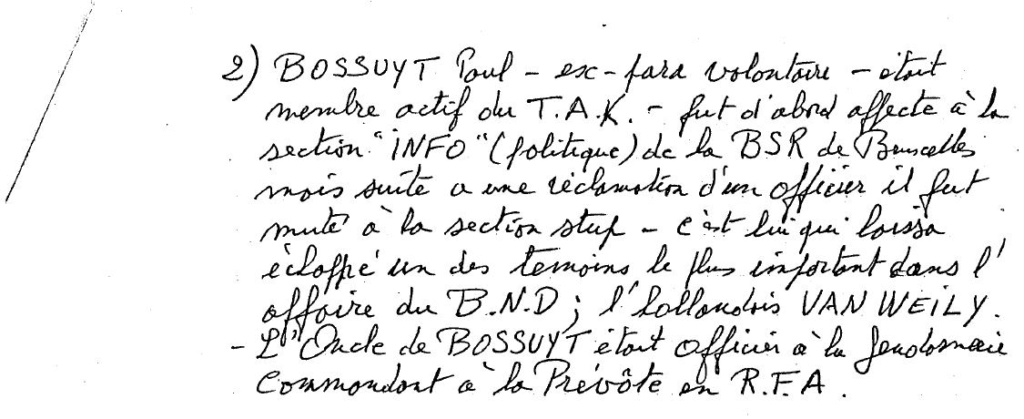 2) BOSSUYT Poul - ex-para volontaire - était
membre actif du T.A.K. - fut d'abord affecte à la
section "INFO" (politique) de la BSR de Bruxelles
mais suite a une réclamation d'un officier il fut
muté à la section stup - c'est lui qui laissa
échappé un des temoins le plus important dans l'
affaire du B.N.D ; l'hollandais VAN WEILY.
- L'Oncle de BOSSUYT était officier à la Gendarmerie
Commandant à la Prévôte en R.F.A.